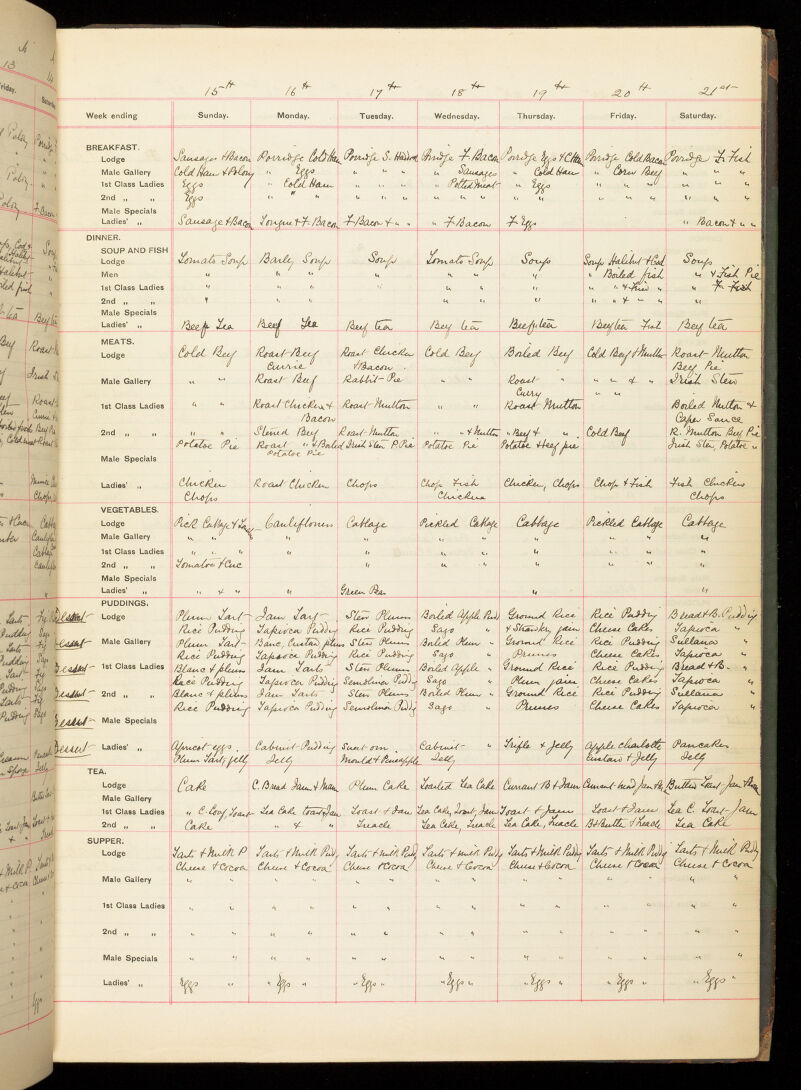 15th 16th 17th 18th 19th 20th 21st
Week ending Sunday. Monday. Tuesday. Wednesday. Thursday. Friday. Saturday.
BREAKFAST.
Lodge Sausages & Bacon Porridge Cold Ham Porridge S. Haddock Porridge F. Bacon Porridge Eggs & C Ham Porridge Cold Bacon Porridge F. Fish
Male Gallery Cold Ham & Polony " Eggs " " " " " Sausages " Cold Ham " Corn Beef " " "
1st Class Ladies Eggs " Cold Ham " " " " " Potted meat " Eggs " " " " " "
2nd " " Eggs " " " " " " " " " " " " " " " " " "
Male Specials
Ladies' " Sausage & Bacon Tongue & F. Bacon F. Bacon & " " " F. Bacon F. Eggs " Bacon & " "
DINNER.
SOUP AND FISH
Lodge Tomato Soup Barley Soup Soup Tomato Soup Soup Soup Halibut & Cod Soup
Men " " " " " " " Boiled fish " & Fish Pie
1st Class Ladies " " " " " " " " " & Fried " " F. Fish
2nd " " " " " " " " " " & " " "
Male Specials
Ladies' " Beef Tea Beef Tea Beef tea Beef tea Beef tea Beef tea Fish Beef tea
MEATS.
Lodge Cold Beef Roast Beef Roast Chicken Cold Beef Boiled Beef Cold Beef & Mutton Roast Mutton
Currie & Bacon Beef Pie
Male Gallery " " Roast Beef Rabbit Pie " " Roast " " " & " Irish Stew
Curry " "
1st Class Ladies " " Roast Chicken & Roast Mutton " " Roast Mutton Boiled Mutton &
Bacon Caper Sauce
2nd " " " " Stewed Beef Roast Mutton " " & Mutton " Beef & " Cold Beef R. Mutton Beef Pie
Potatoe Pie Roast " & Boiled Irish Stew P. Pie Potatoe Pie Potatoe & Beef pie Irish Stew, Potatoe "
Potatoe Pie
Male Specials
Ladies' " Chicken Roast Chicken Chops Chop Fish Chicken, Chops Chop & Fish Fish Chicken
Chops Chicken Chops
VEGETABLES.
Lodge Pick Cabbage & Cauliflowers Cabbage Pickled Cabbage Cabbage Pickled Cabbage Cabbage
Male Gallery " " " " " " " " " " "
1st Class Ladies " " " " " " " " " " "
2nd " " Tomatoe & Cuc " " " " " "
Male Specials
Ladies' " " & " " Green Peas " "
PUDDINGS.
Dessert Lodge Plum Tart Jam Tart Stew Plums Boiled Apple Pudd Ground Rice Rice Pudding Bread & B. Pudding
Rice Pudding Tapioca Pudding Rice Pudding Sago " & Strawby jam Cheese Cakes Tapioca "
Dessert Male Gallery Plum Tart Blanc, Custard plums Stew Plums Boiled Plum " Ground Rice Rice Pudding Sultana "
Rice Pudding Tapioca Pudding Rice Pudding Sago " Prunes Cheese Cakes Tapioca "
Dessert 1st Class Ladies Blanc & plums Jam Tarts Stew Plums Boiled Apple " Ground Rice Rice Pudding Bread & B. "
Rice Pudding Tapioca Pudding Semolina Pudg Sago " Plum jam Cheese Cakes Tapioca "
Dessert 2nd " " Blanc & plums Jam Tarts Stew Plums Boiled Plum " Ground Rice Rice Pudding Sultana "
Rice Pudding Tapioca Pudding Semolina Pudg Sago " Prunes Cheese Cakes Tapioca "
Dessert Male Specials
Dessert Ladies' " Apricot eggs. Cabinet Pudding Suet om. Cabinet " Trifle & Jelly Apple charlotte Pancakes
Plum Tart, jelly Jelly Mould & Pineapple Jelly Custard & Jelly Jelly
TEA.
Lodge Cake C. Bread Jam & Mar Plum Cake Toasted Tea Cake Currant B & Jam Currant bread Jam & M Butter Toast Jam
Male Gallery
1st Class Ladies " Toast Tea Cake Toast & Jam Toast & Jam Tea Cake, Toast, Jam Toast & Jam Toast & Jam Tea C. Toast Jam
2nd " " Cake " & " Treacle Tea Cake, Treacle Tea Cake, Treacle B & Butter & Treacle Tea Cake
SUPPER.
Lodge Tarts & Milk P Tarts & Milk Pudg Tarts & Milk Pudg Tarts & Milk Pudg Tarts & Milk Pudg Tarts & Milk Pudg Tarts & Milk Pudg
Cheese & Cocoa Cheese & Cocoa Cheese & Cocoa Cheese & Cocoa Cheese & Cocoa Cheese & Cocoa Cheese & Cocoa
Male Gallery " " " " " " " " " " " " " "
1st Class Ladies " " " " " " " " " " " " " "
2nd " " " " " " " " " " " " " " " "
Male Specials " " " " " " " " " " " " " "
Ladies' " Eggs " " Eggs " " Eggs " " Eggs " " Eggs " " Eggs " " Eggs "